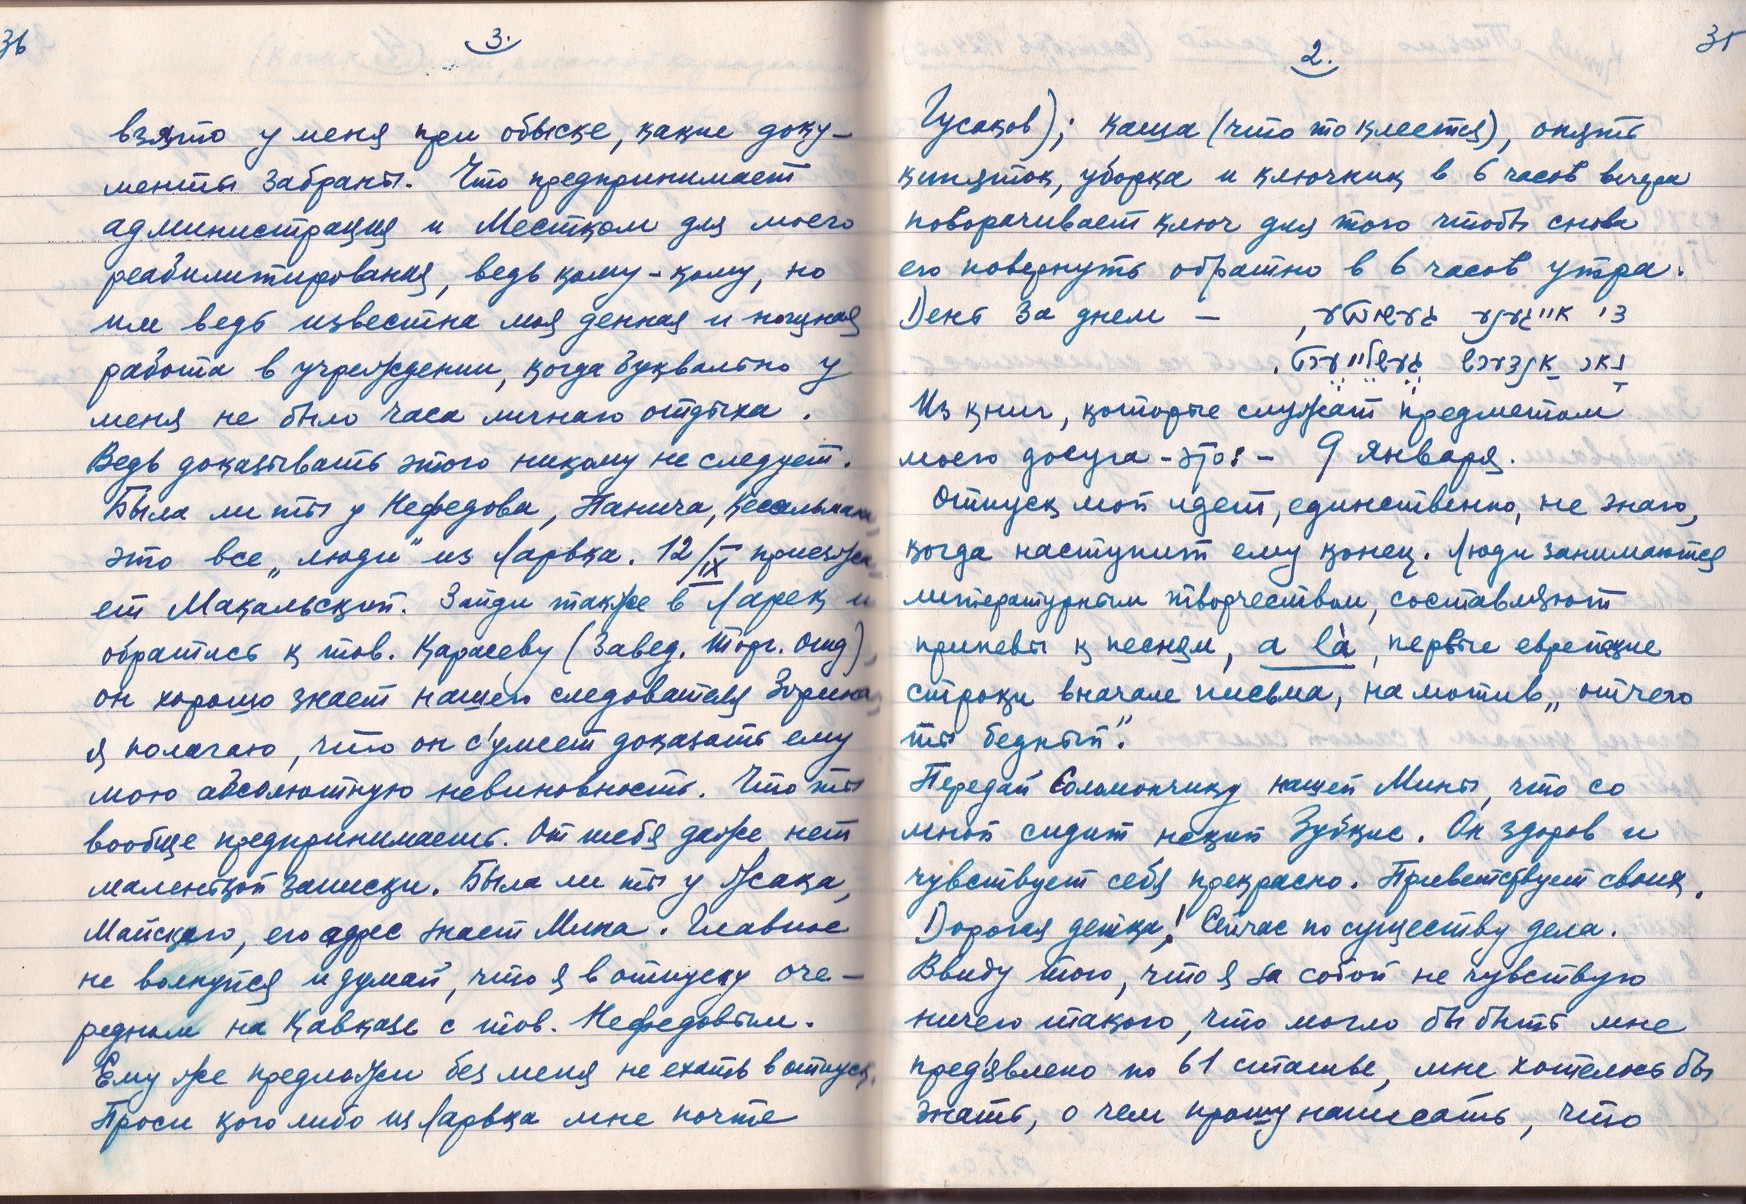 35
2.
Гусаков); каша (что то клеется), опять
кипяток, уборка и ключник в 6 часов вечера
поворачивает ключ для того чтобы снова
его повернуть обратно в 6 часов утра.
День за днем – די אייגענע
Из книг, которые служат предметом
моего досуга – это: – 9 Января.
Отпуск мой идет, единственно, не знаю,
когда наступит ему конец. Люди занимаются
литературным творчеством, составляют
припевы к песням, a la , первые еврейские
строки вначале письма, на мотив „отчего
ты бедный".
Передай Соломончику нашей Мины, что со
мной сидит некий Зубкис. Он здоров и
чувствует себя прекрасно. Приветствует своих.
Дорогая детка! Сейчас по существу дела.
Ввиду того, что я за собой не чувствую
ничего такого, что могло бы быть мне
пред'явлено по 61 статье, мне хотелось бы
знать, о чем прошу написать, что
36
3.
взято у меня при обыске, какие доку–
менты забраны. Что предпринимает
администрация и Местком для моего
реабилитирования, ведь кому-кому, но
им ведь известна моя денная и нощная
работа в учреждении, когда буквально у
меня не было часа личнаго отдыха.
Ведь доказывать этого никому не следует.
Была ли ты у Нефедова, Панича, Кессельмана,
это все „люди" из Ларька. 12/IX приезжа–
ет Макальский. Зайди также в Ларек и
обратись к тов. Карасеву (Завед. Торг. Отд),
он хорошо знает нашего следователя Зорина,
я полагаю, что он с'умеет доказать ему
мою абсолютную невиновность. Что ты
вообще предпринимаешь. От тебя даже нет
маленькой записки. Была ли ты у Исака,
Майского, его адрес знает Миха. Главное
не волнуйся и думай, что я в отпуску оче–
редном на Кавказе с тов. Нефедовым.
Ему же предложи без меня не ехать в отпуск.
Проси кого либо из Ларька мне почте